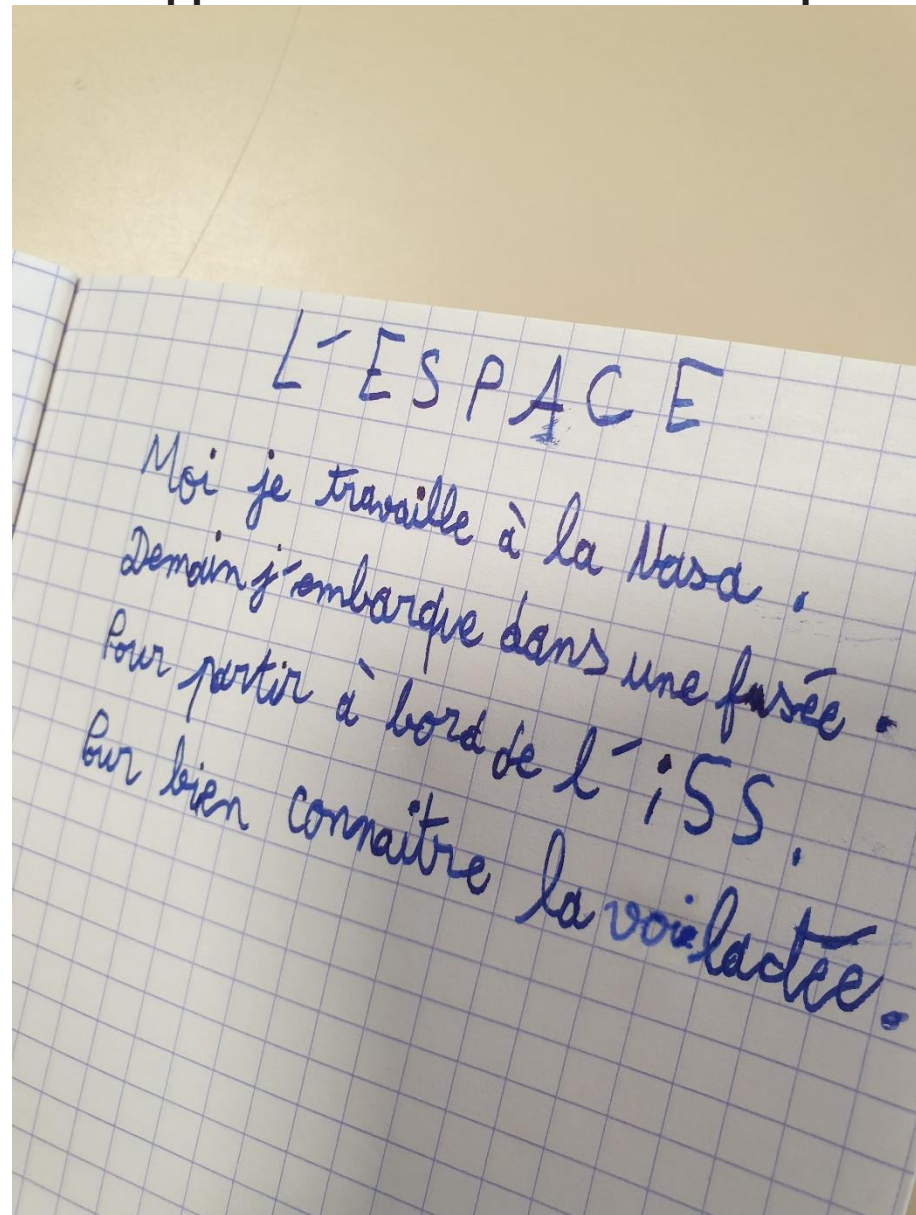 L'ESPACE
Moi je travaille à la Nasa.
Demain j'embarque dans une fusée.
Pour partir à bord de l'iSS.
Pour bien connaitre la voie lactée.